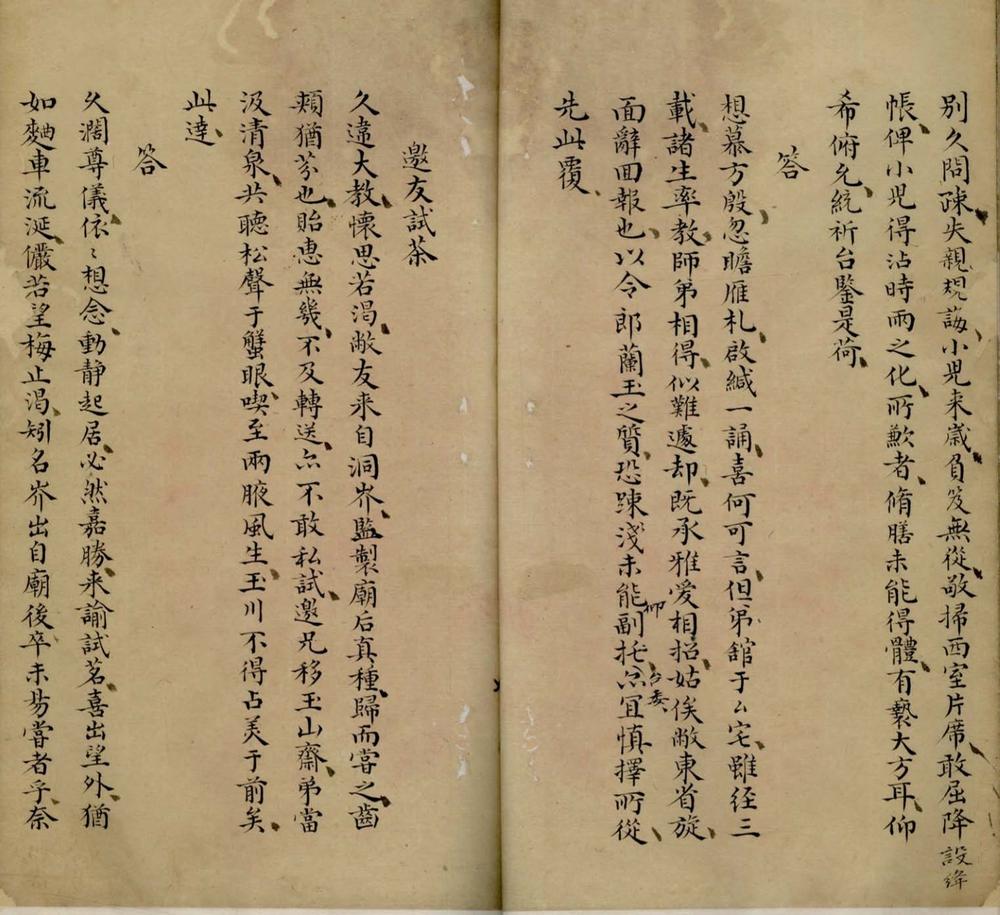 別久問疎失親規誨小児来歲負笈無從敬掃西室片席敢屈降設絳
帳俾小児得沾時雨之化所歉者脩膳未能得體有褻大方耳仰
希俯允統祈台鑒是荷
答
想慕方殷忽瞻雁札啟緘一誦喜何可言但弟舘于厶宅雖経三
載諸生率教師弟相得似難遽却既承雅爱相招姑俟敝東省旋
面辭回報也以令郎蘭玉之質恐踈淺未能副仰托台委亦宜慎擇所從
先此覆
邀友試茶
久違大教懷思若渴敝友来自洞岕監製廟后真種歸而嘗之齒
頰猶芬也貽惠無幾不及轉送亦不敢私試邀兄移玉山齋弟當
汲清泉共聽松聲于蟹眼喫至兩腋風生玉川不得占美于前矣
此達
答
久濶尊儀依〻想念動静起居必然嘉勝来諭試茗喜出望外猶
如麯車流涎儼若望梅止渴矧名岕出自廟後卒未易嘗者乎奈